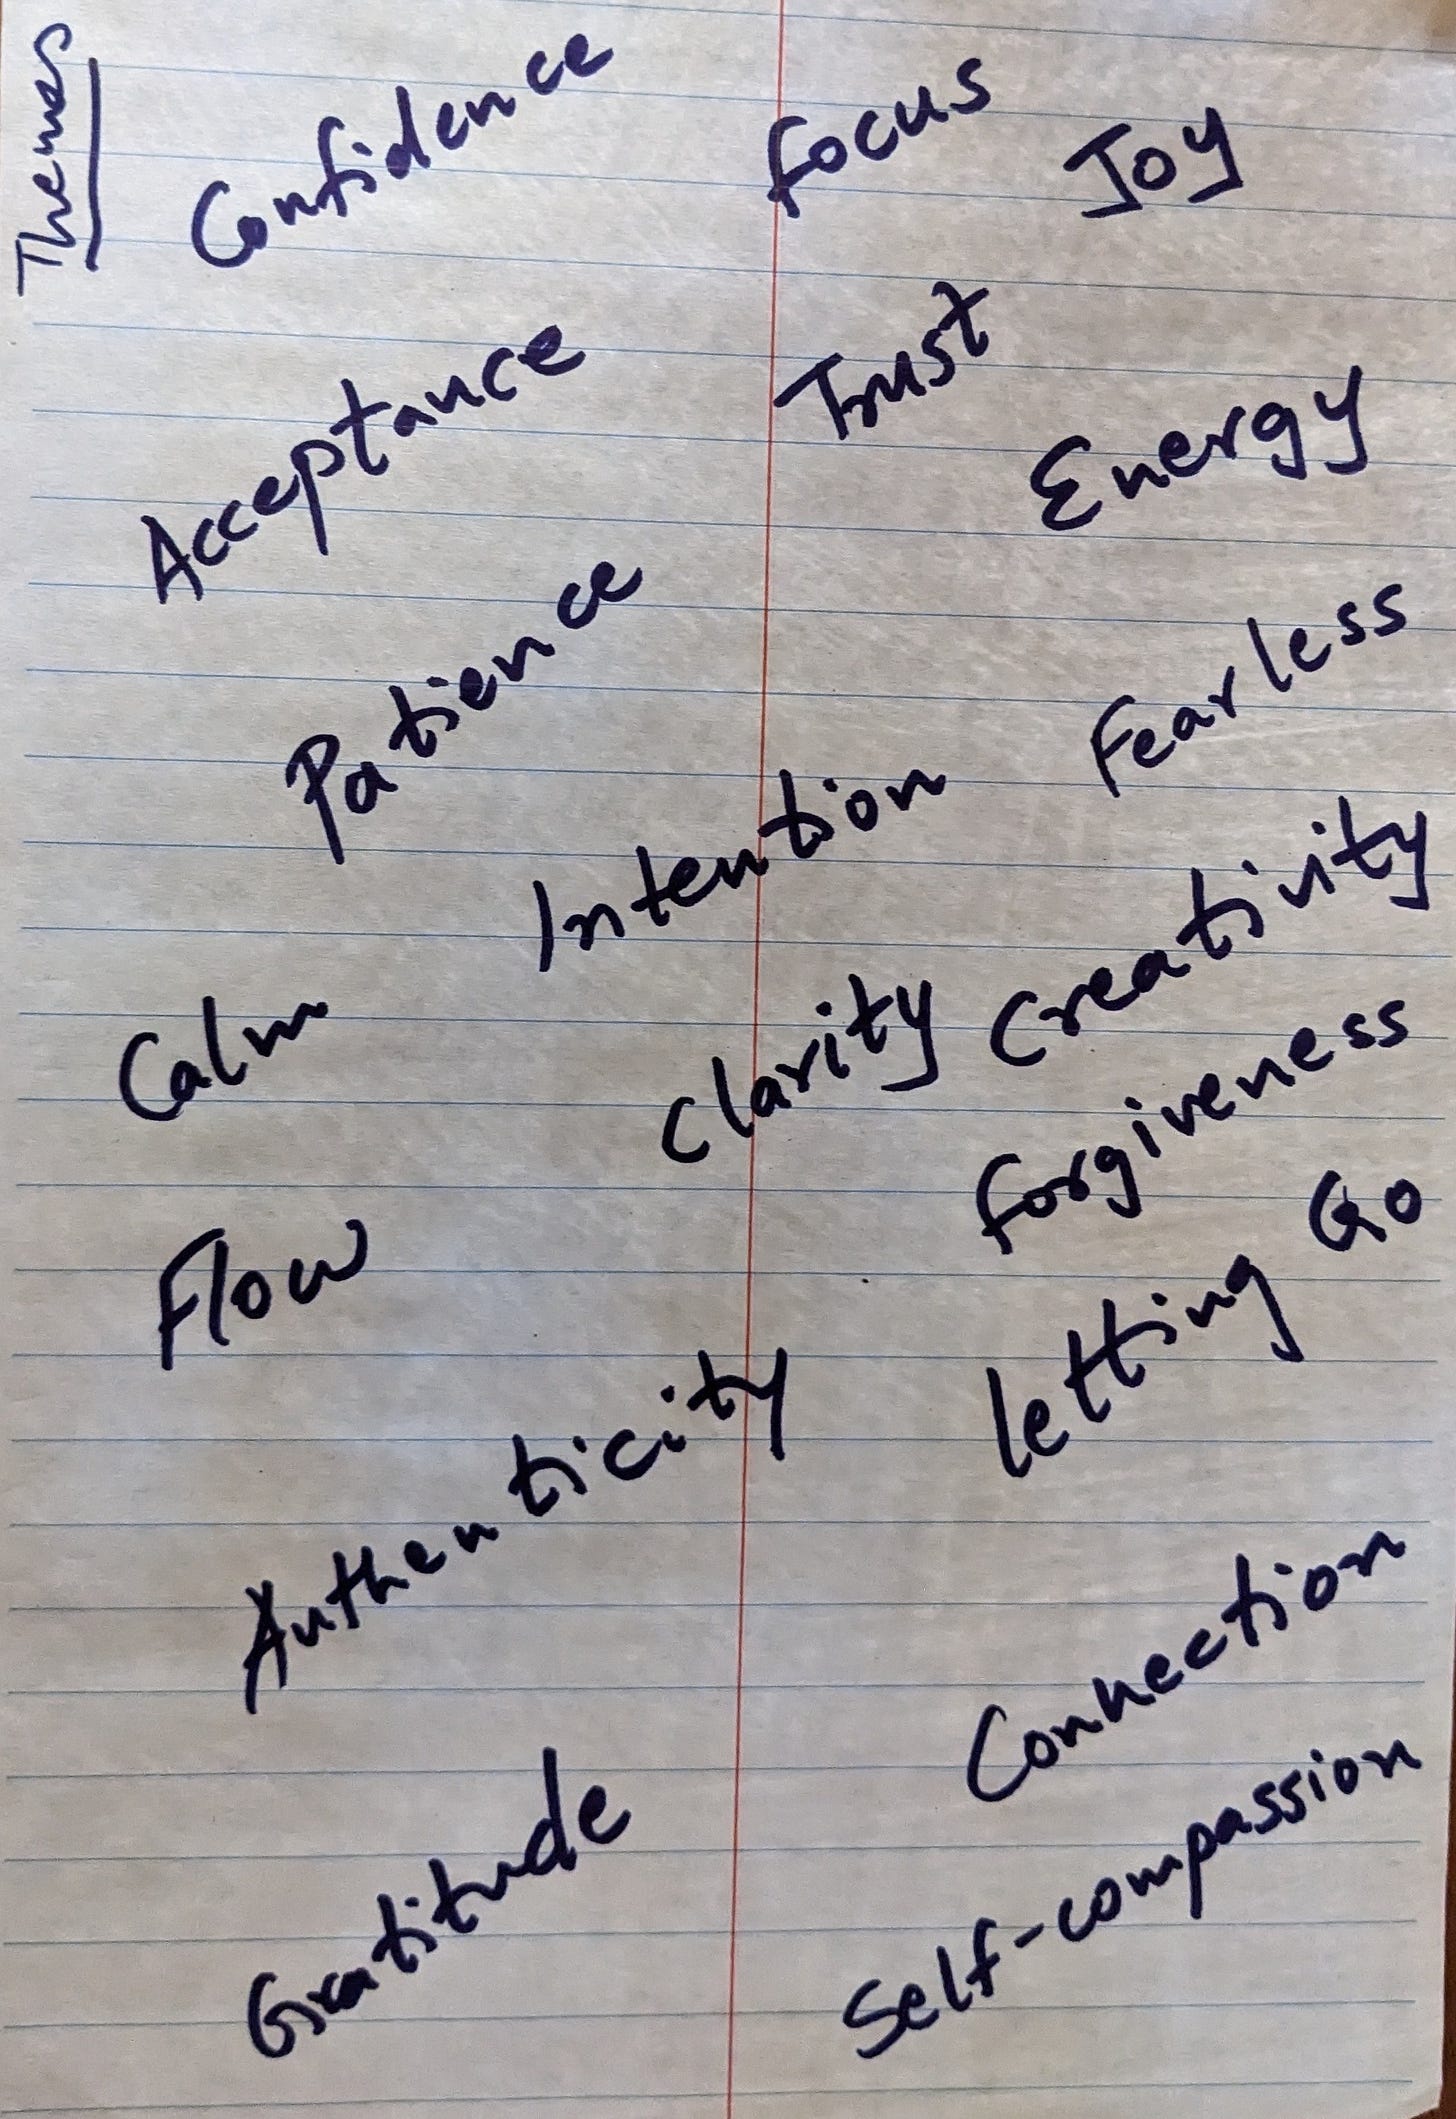 Themes
Confidence
focus
Joy
Acceptance
Trust
Energy
Patience
Fearless
Intention
Creativity
Calm
Clarity
forgiveness
Flow
letting Go
Authenticity
Connection
Gratitude
Self-compassion